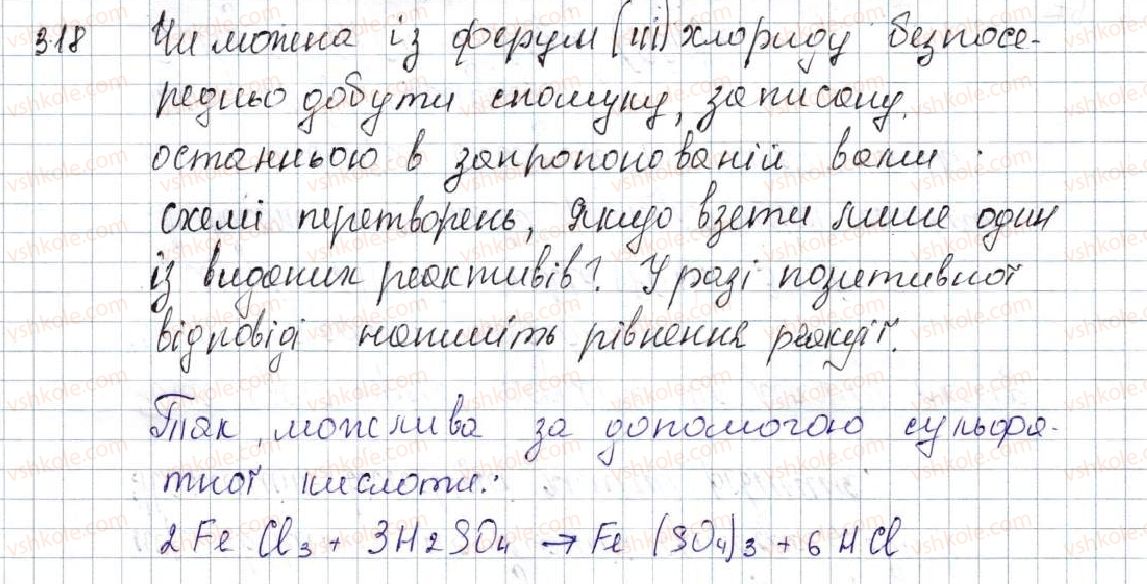 318 Чи можна із ферум (III) хлориду безпосе-
редньо добути сполуку, записану
останньою в запропонованій вами
схемі перетворень, якщо взяти лише один
із виданих реактивів? У разі позитивної
відповіді напишіть рівнення реакції.
Так, можлива за допомогою сульфа-
тної кислоти:
2FeCl₃ + 3H₂SO₄ → Fe(SO₄)₃ + 6HCl
vshkole.com